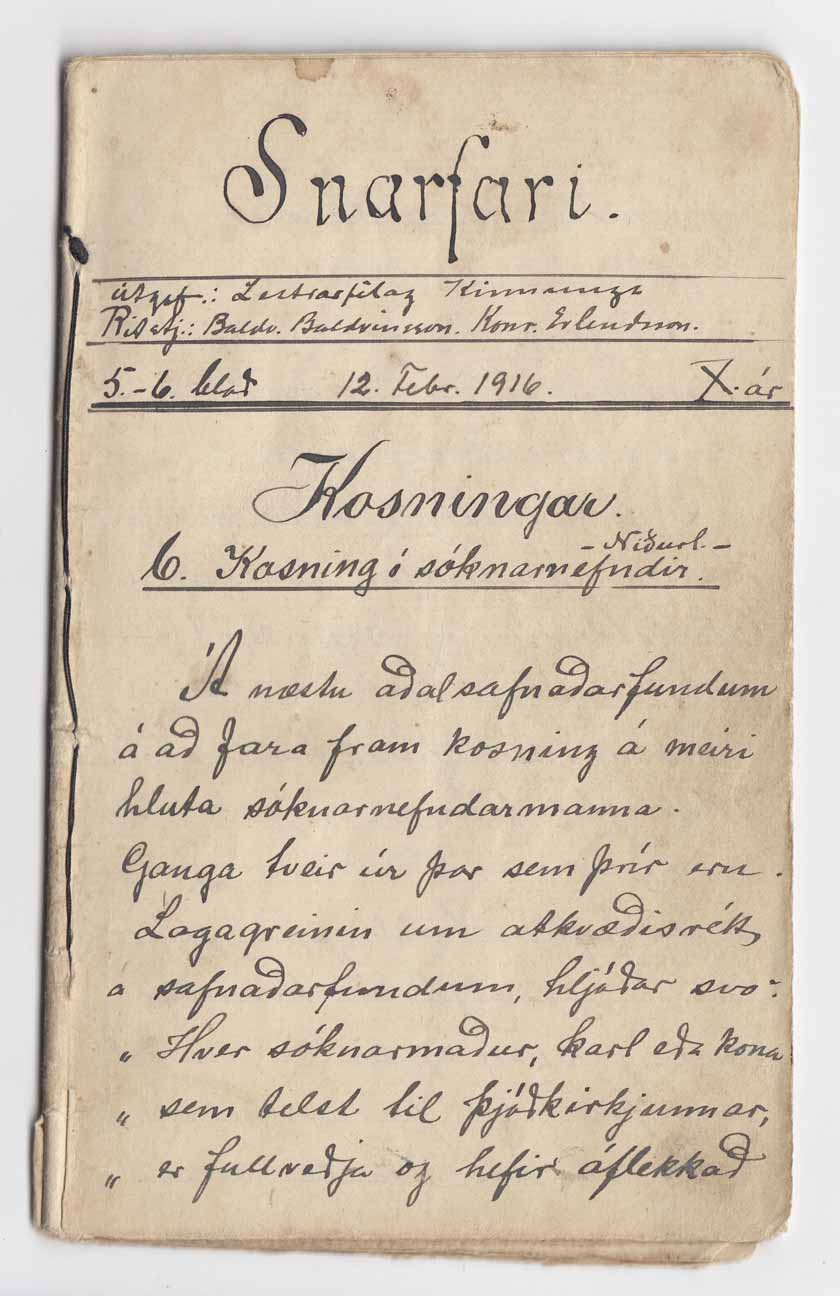 Snarfari.
Útgef.: Lestrarfélag Kinnunga
Ritstj.: Baldv. Baldvinsson. Konr. Erlendsson.
5.-6. blað 12. Febr. 1916. X. ár
Kosningar.
- Niðurl. -
6. Kosning í sóknarnefndir.
Á næstu aðalsafnaðarfundum
á að fara fram kosning á meiri
hluta sóknarnefndarmanna.
Ganga tveir úr þar sem þrír eru.
Lagagreinin um atkvæðisrétt
á safnaðarfundum, hljóðar svo:
„ Hver sóknarmaður, karl eða kona
„ sem telst til þjóðkirkjunnar,
„ er fullveðja og hefir óflekkað